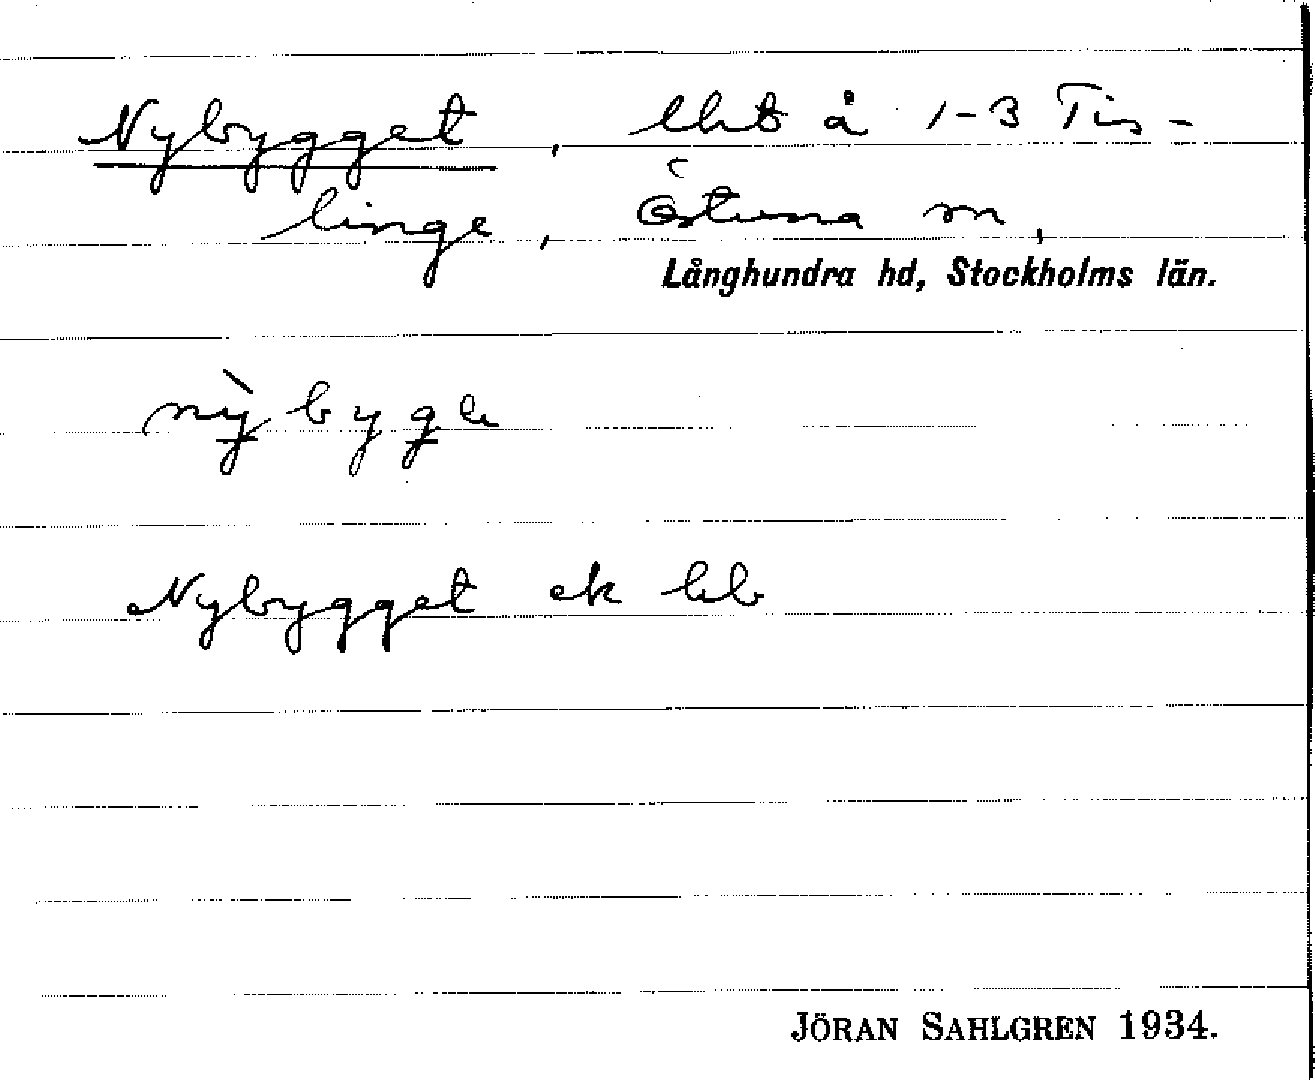 Nybygget, lht å 1-3 Tis-
linge, Östuna sn,
Långhundra hd, Stockholms län.
nỳbygle
Nybygget ek
JÖRAN SAHLGREN 1934.